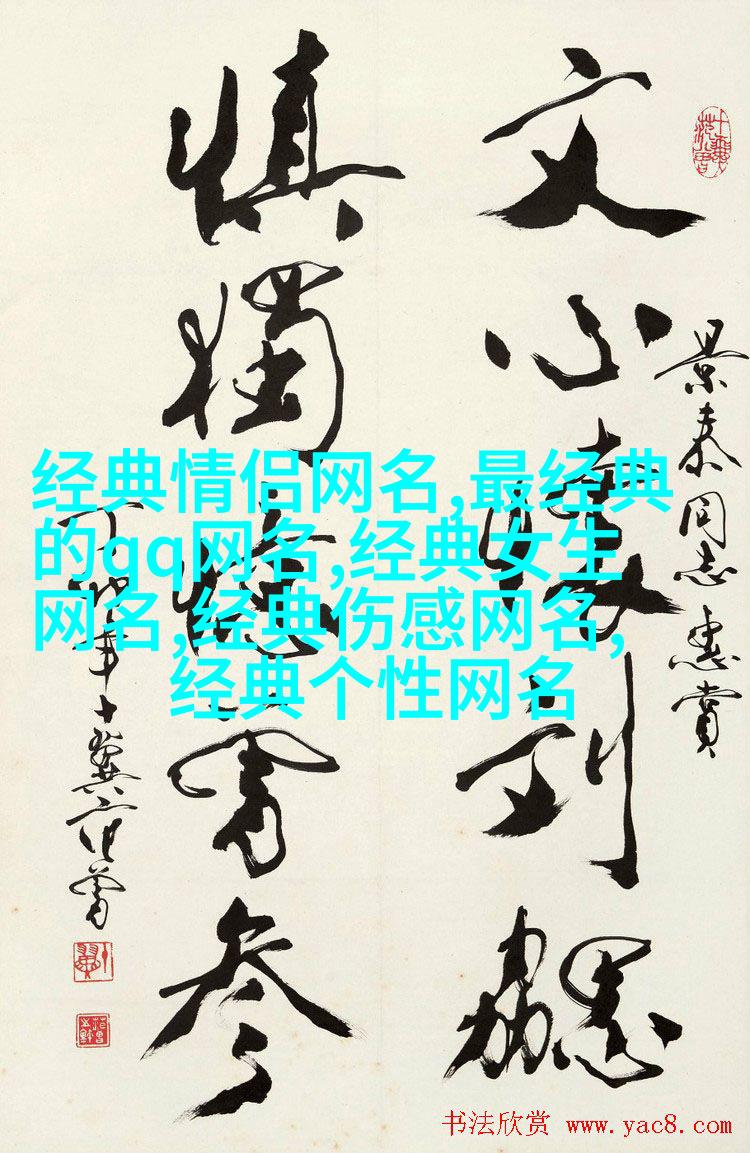 景泰同志惠賞
文心到勰
慎獨憶曾參
丁年十翼范曾
经典情侣网名,最经典
的qq网名,经典女生
网名,经典伤感网名,
经典个性网名
书法欣赏 www.yac8.com